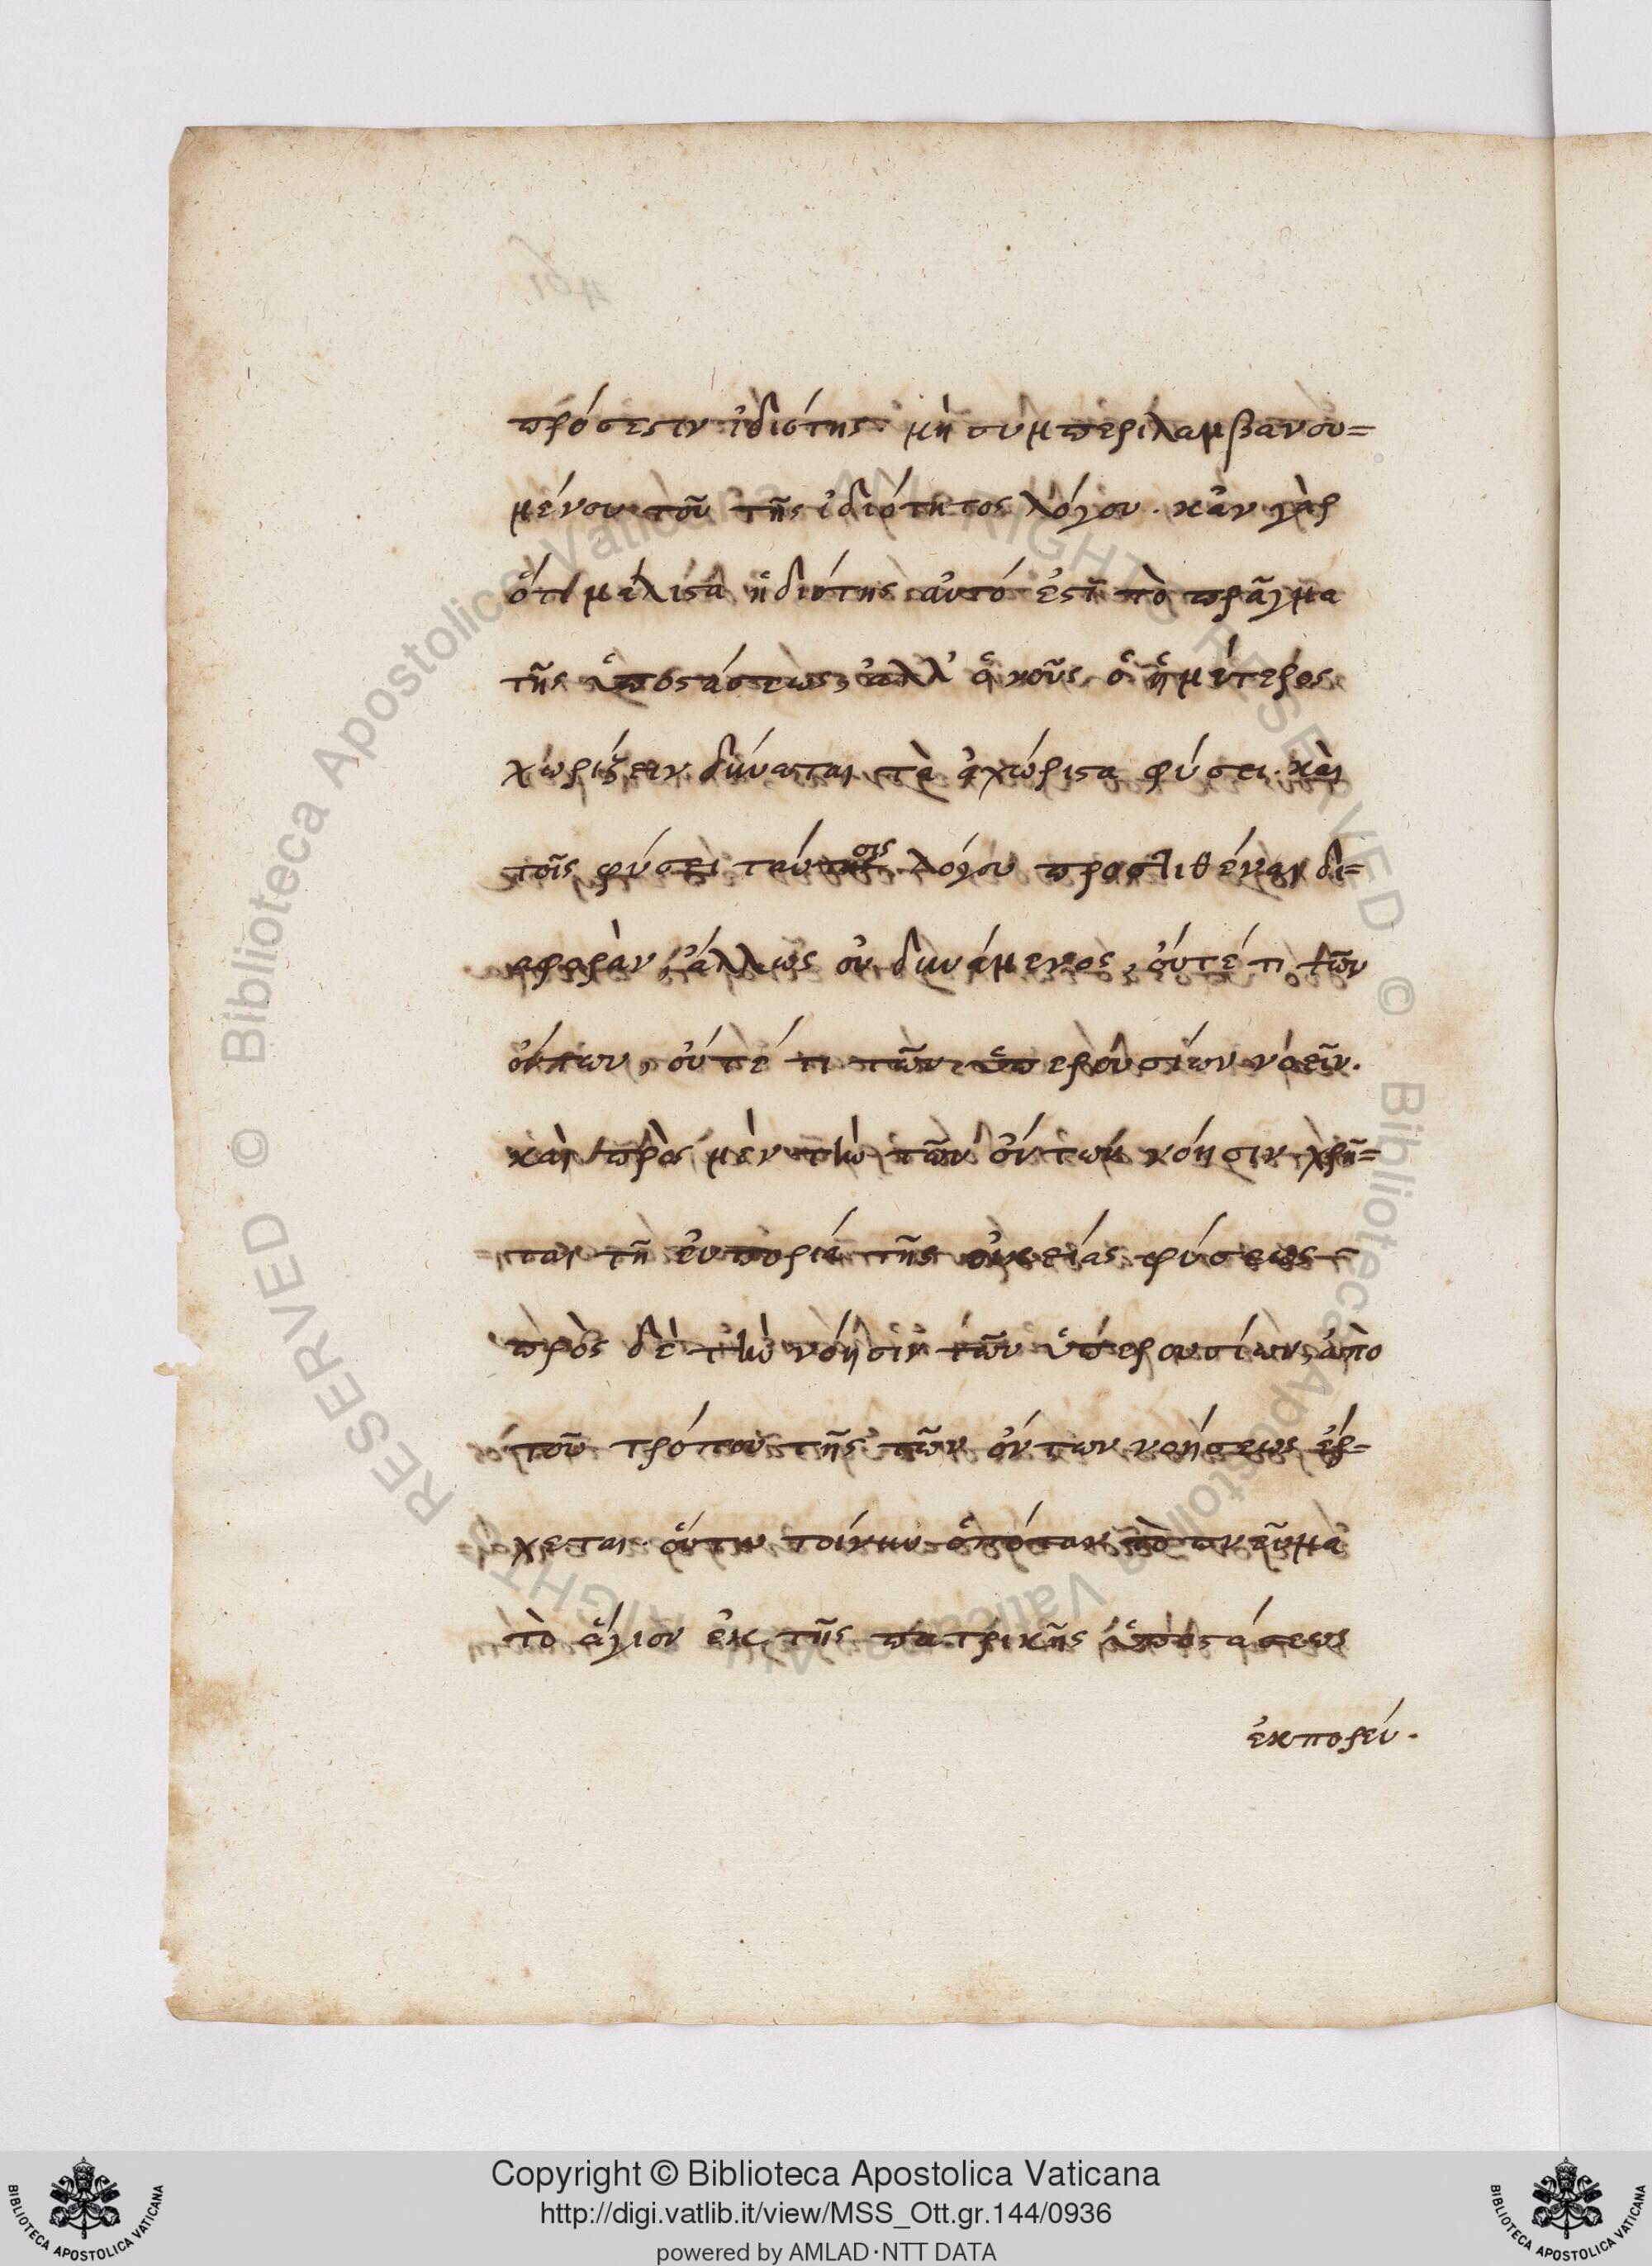 πρόσεστιν ἰδιότης· μὴ συμπεριλαμβανου=
μένου τοῦ τῆς ἰδιότητος λόγου. κἂν γὰρ
ὅτι μάλιστα ἡδιότης αὐτό ἐστι τὸ πρᾶγμα
τῆς ὑποστάσεως, ἀλλ' ὁ νοῦς ὁ ἡμέτερος
χωρίζειν δύναται τὰ ἀχώριστα φύσει. καὶ
τοῖς φύσει ταύτοῖς λόγου προστιθέναι δι=
αφορὰν, ἄλλως οὐ δυνάμενος, οὔτέ τι τῶν
ὄντων, οὔτέ τι τῶν ὑπερουσίων νοεῖν.
καὶ πρὸς μὲν τὴν τῶν ὄντων νόησιν χρῆ=
ται τῇ εὐπορίᾳ τῆς οἰκείας φύσεως
πρὸς δὲ τὴν νόησιν τῶν ὑπερουσίων, ἀπὸ
τοῦ τρόπου τῆς τῶν ὄντων νοήσεως ἔρ=
χεται. οὕτω τοίνυν ὁπόταν τὸ πνεῦμα
τὸ ἅγιον ἐκ τῆς πατρικῆς ὑποστάσεως
ἐκπορεύ.
Copyright © Biblioteca Apostolica Vaticana
http://digi.vatlib.it/view/MSS_Ott.gr.144/0936
powered by AMLAD·NTT DATA